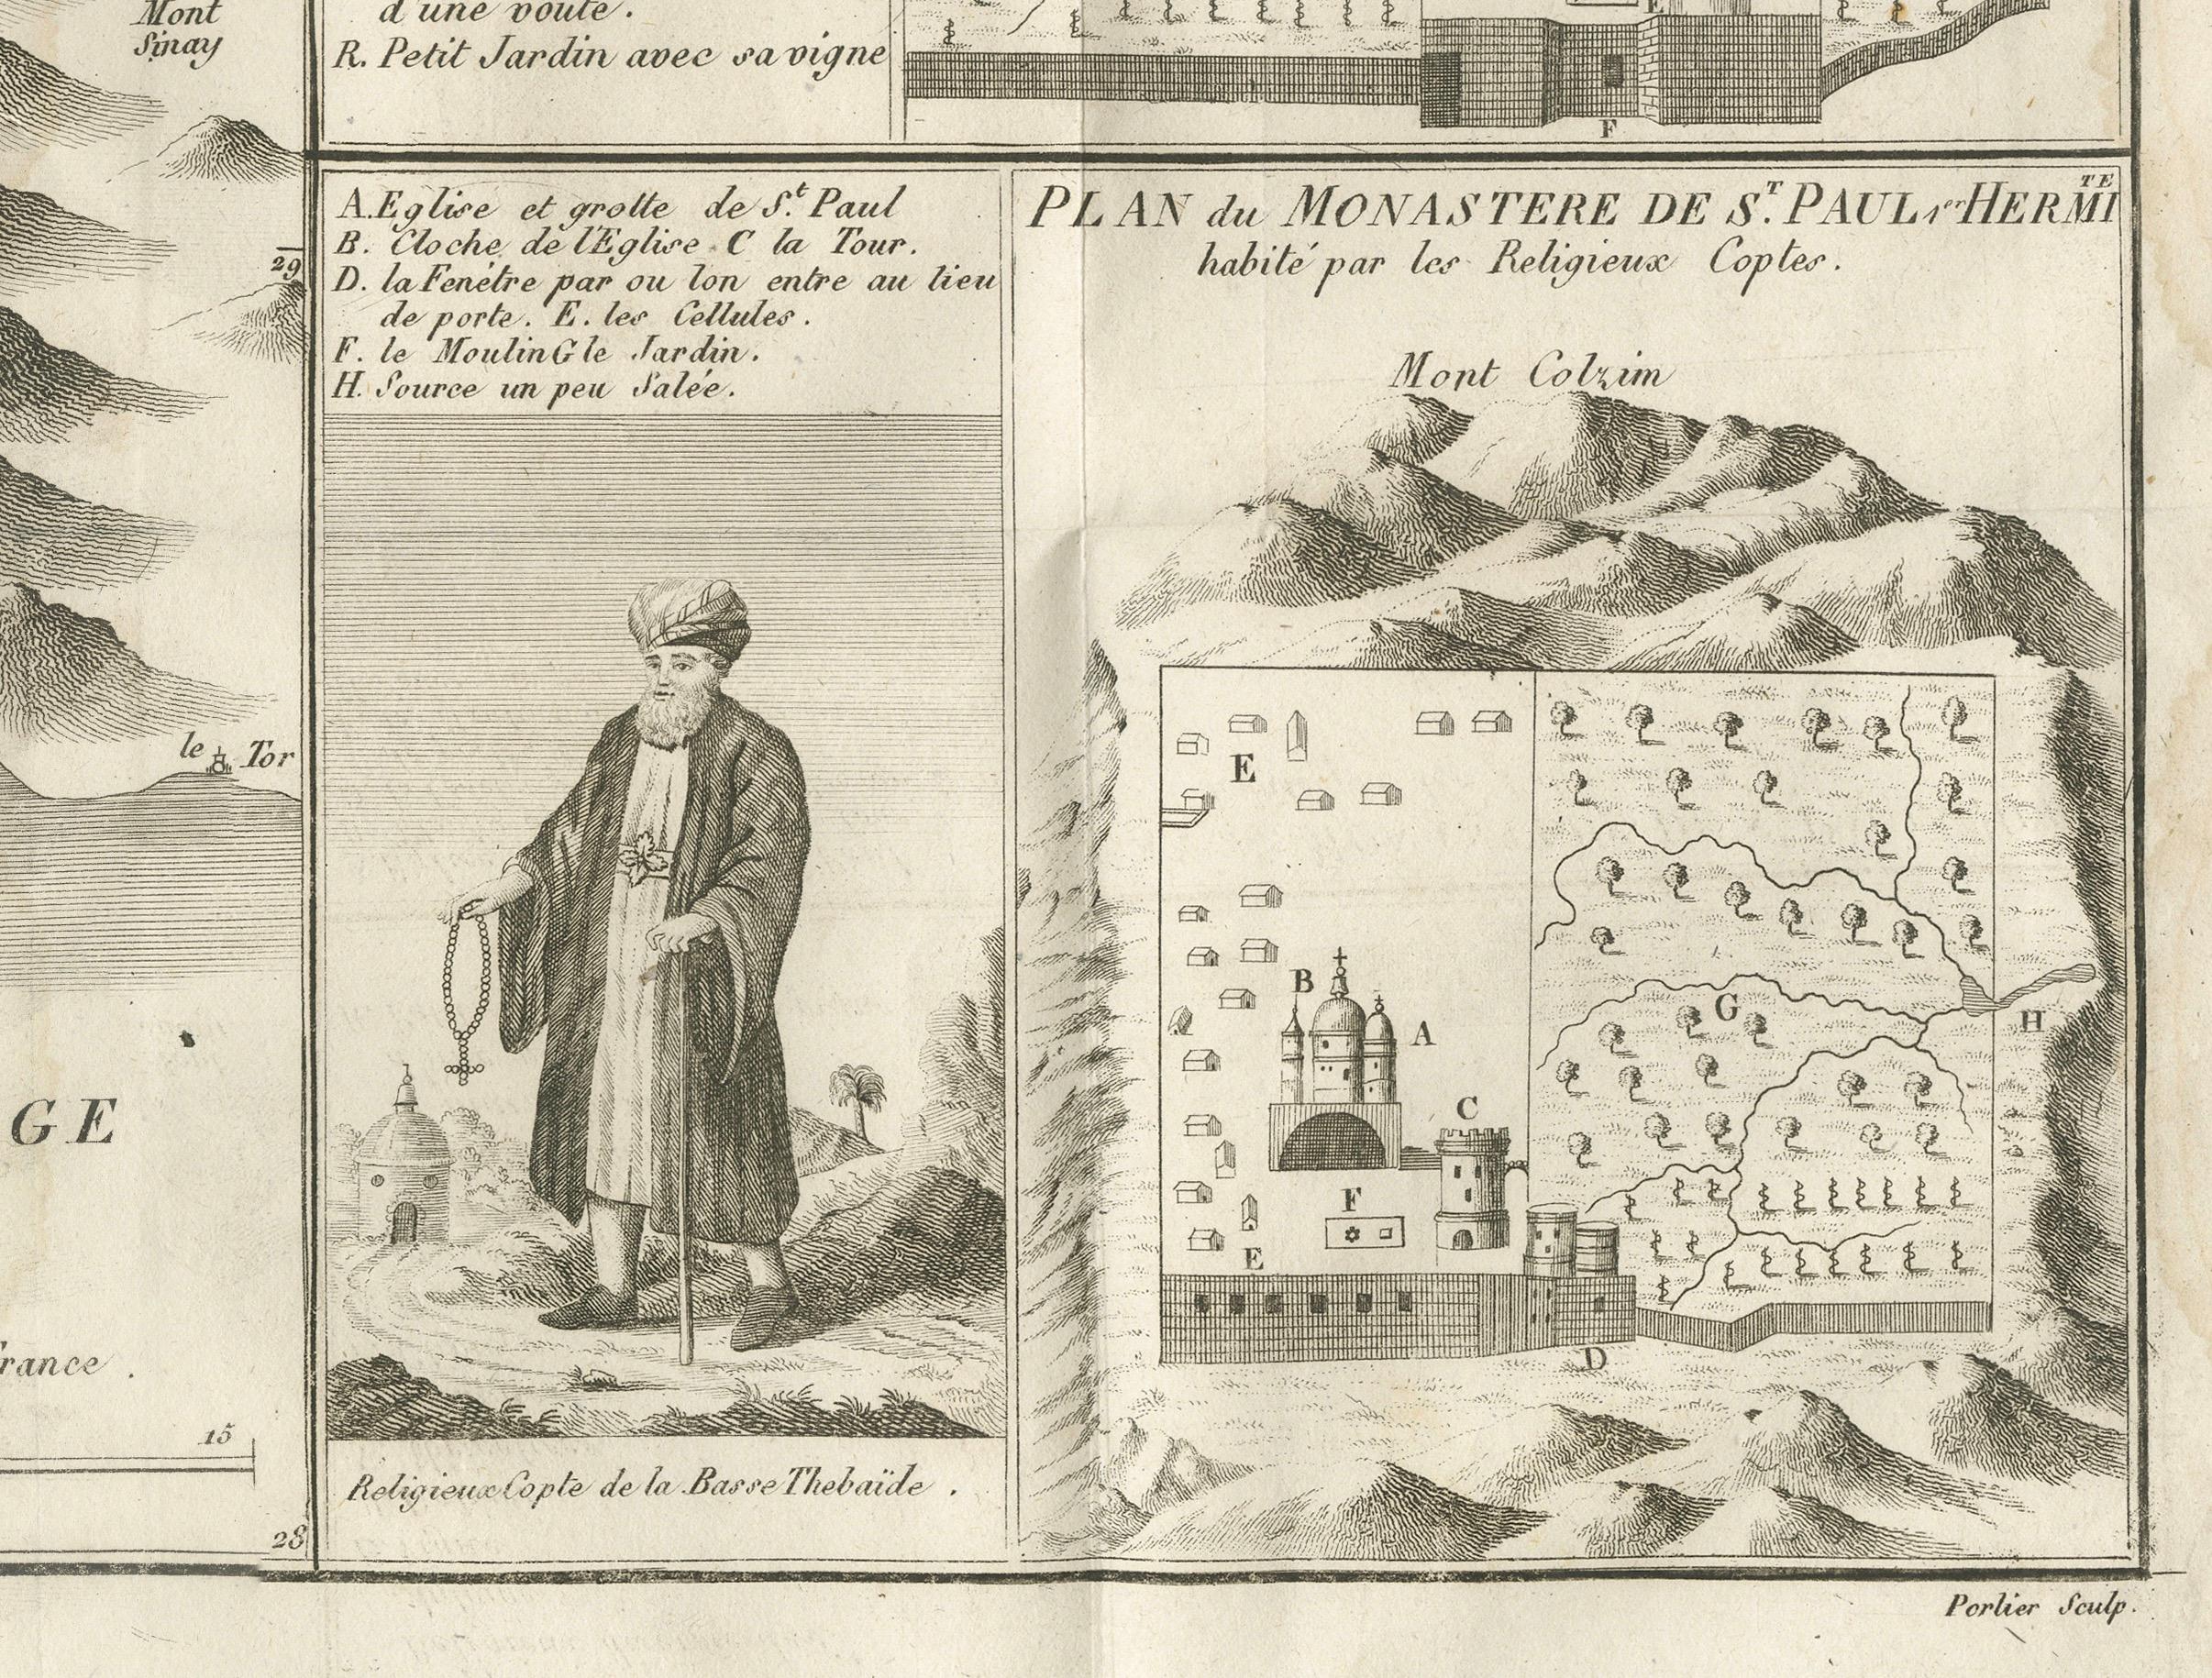 Mont
Sinay
d'une voute.
R. Petit Jardin avec sa vigne
E
F
A. Eglise et grotte de S.t Paul
B. Cloche de l'Eglise C la Tour.
D. la Fenétre par ou lon entre au lieu
de porte. E. les Cellules.
F. le Moulin G le Jardin.
H. Source un peu Salée.
PLAN du MONASTERE DE S.T PAUL 1er HERMITE
habité par les Religieux Coptes.
Mont Colzim
29
le Tor
E
B
A
G
H
C
F
E
D
GE
rance.
15
28
Religieux Copte de la Basse Thebaïde.
Porlier Sculp.